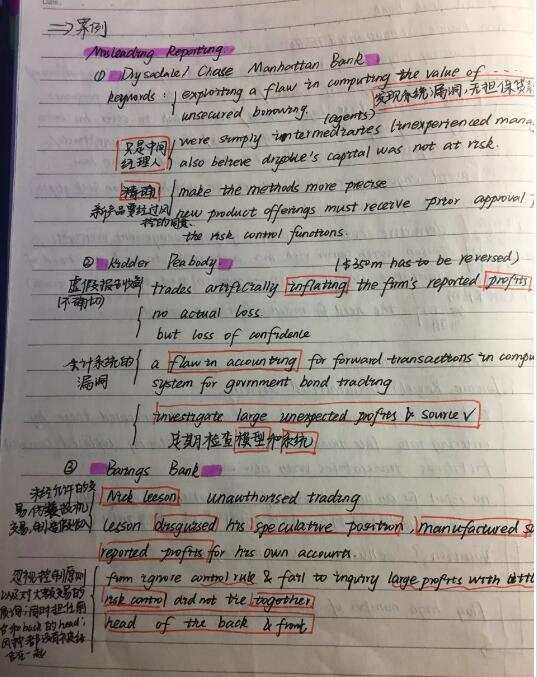 ⇒ 案例
Misleading Reporting
① Drysdale/ Chase Manhattan Bank
keywords: exploiting a flaw in computing the value of ......
unsecured borrowing. 发现系统漏洞,无担保贷
(agents)
只是中间经理人 were simply intermediaries (inexperienced mana
also believe drysdale's capital was not at risk.
精确 make the methods more precise
新产品要经过风控的同意 new product offerings must receive prior approval
the risk control functions.
② Kidder Peabody. ($350m has to be reversed)
虚假报告收益 trades artificially inflating the firm's reported profits
(不确切) no actual loss
but loss of confidence
会计系统的漏洞 a flaw in accounting for forward transactions in compu
system for government bond trading
investigate large unexpected profits & source √
定期检查模型和系统
③ Barings Bank
未经允许的交 Nick leeson unauthorised trading
易,伪装投机
交易,制造假收入 leeson disguised his speculative position, manufactured
reported profits for his own accounts.
忽视控制原则 firm ignore control rule & fail to inquiry large profits with
以及对大数交易的
质询;同时担任前 risk control did not tie together
台和back的head; head of the back & front